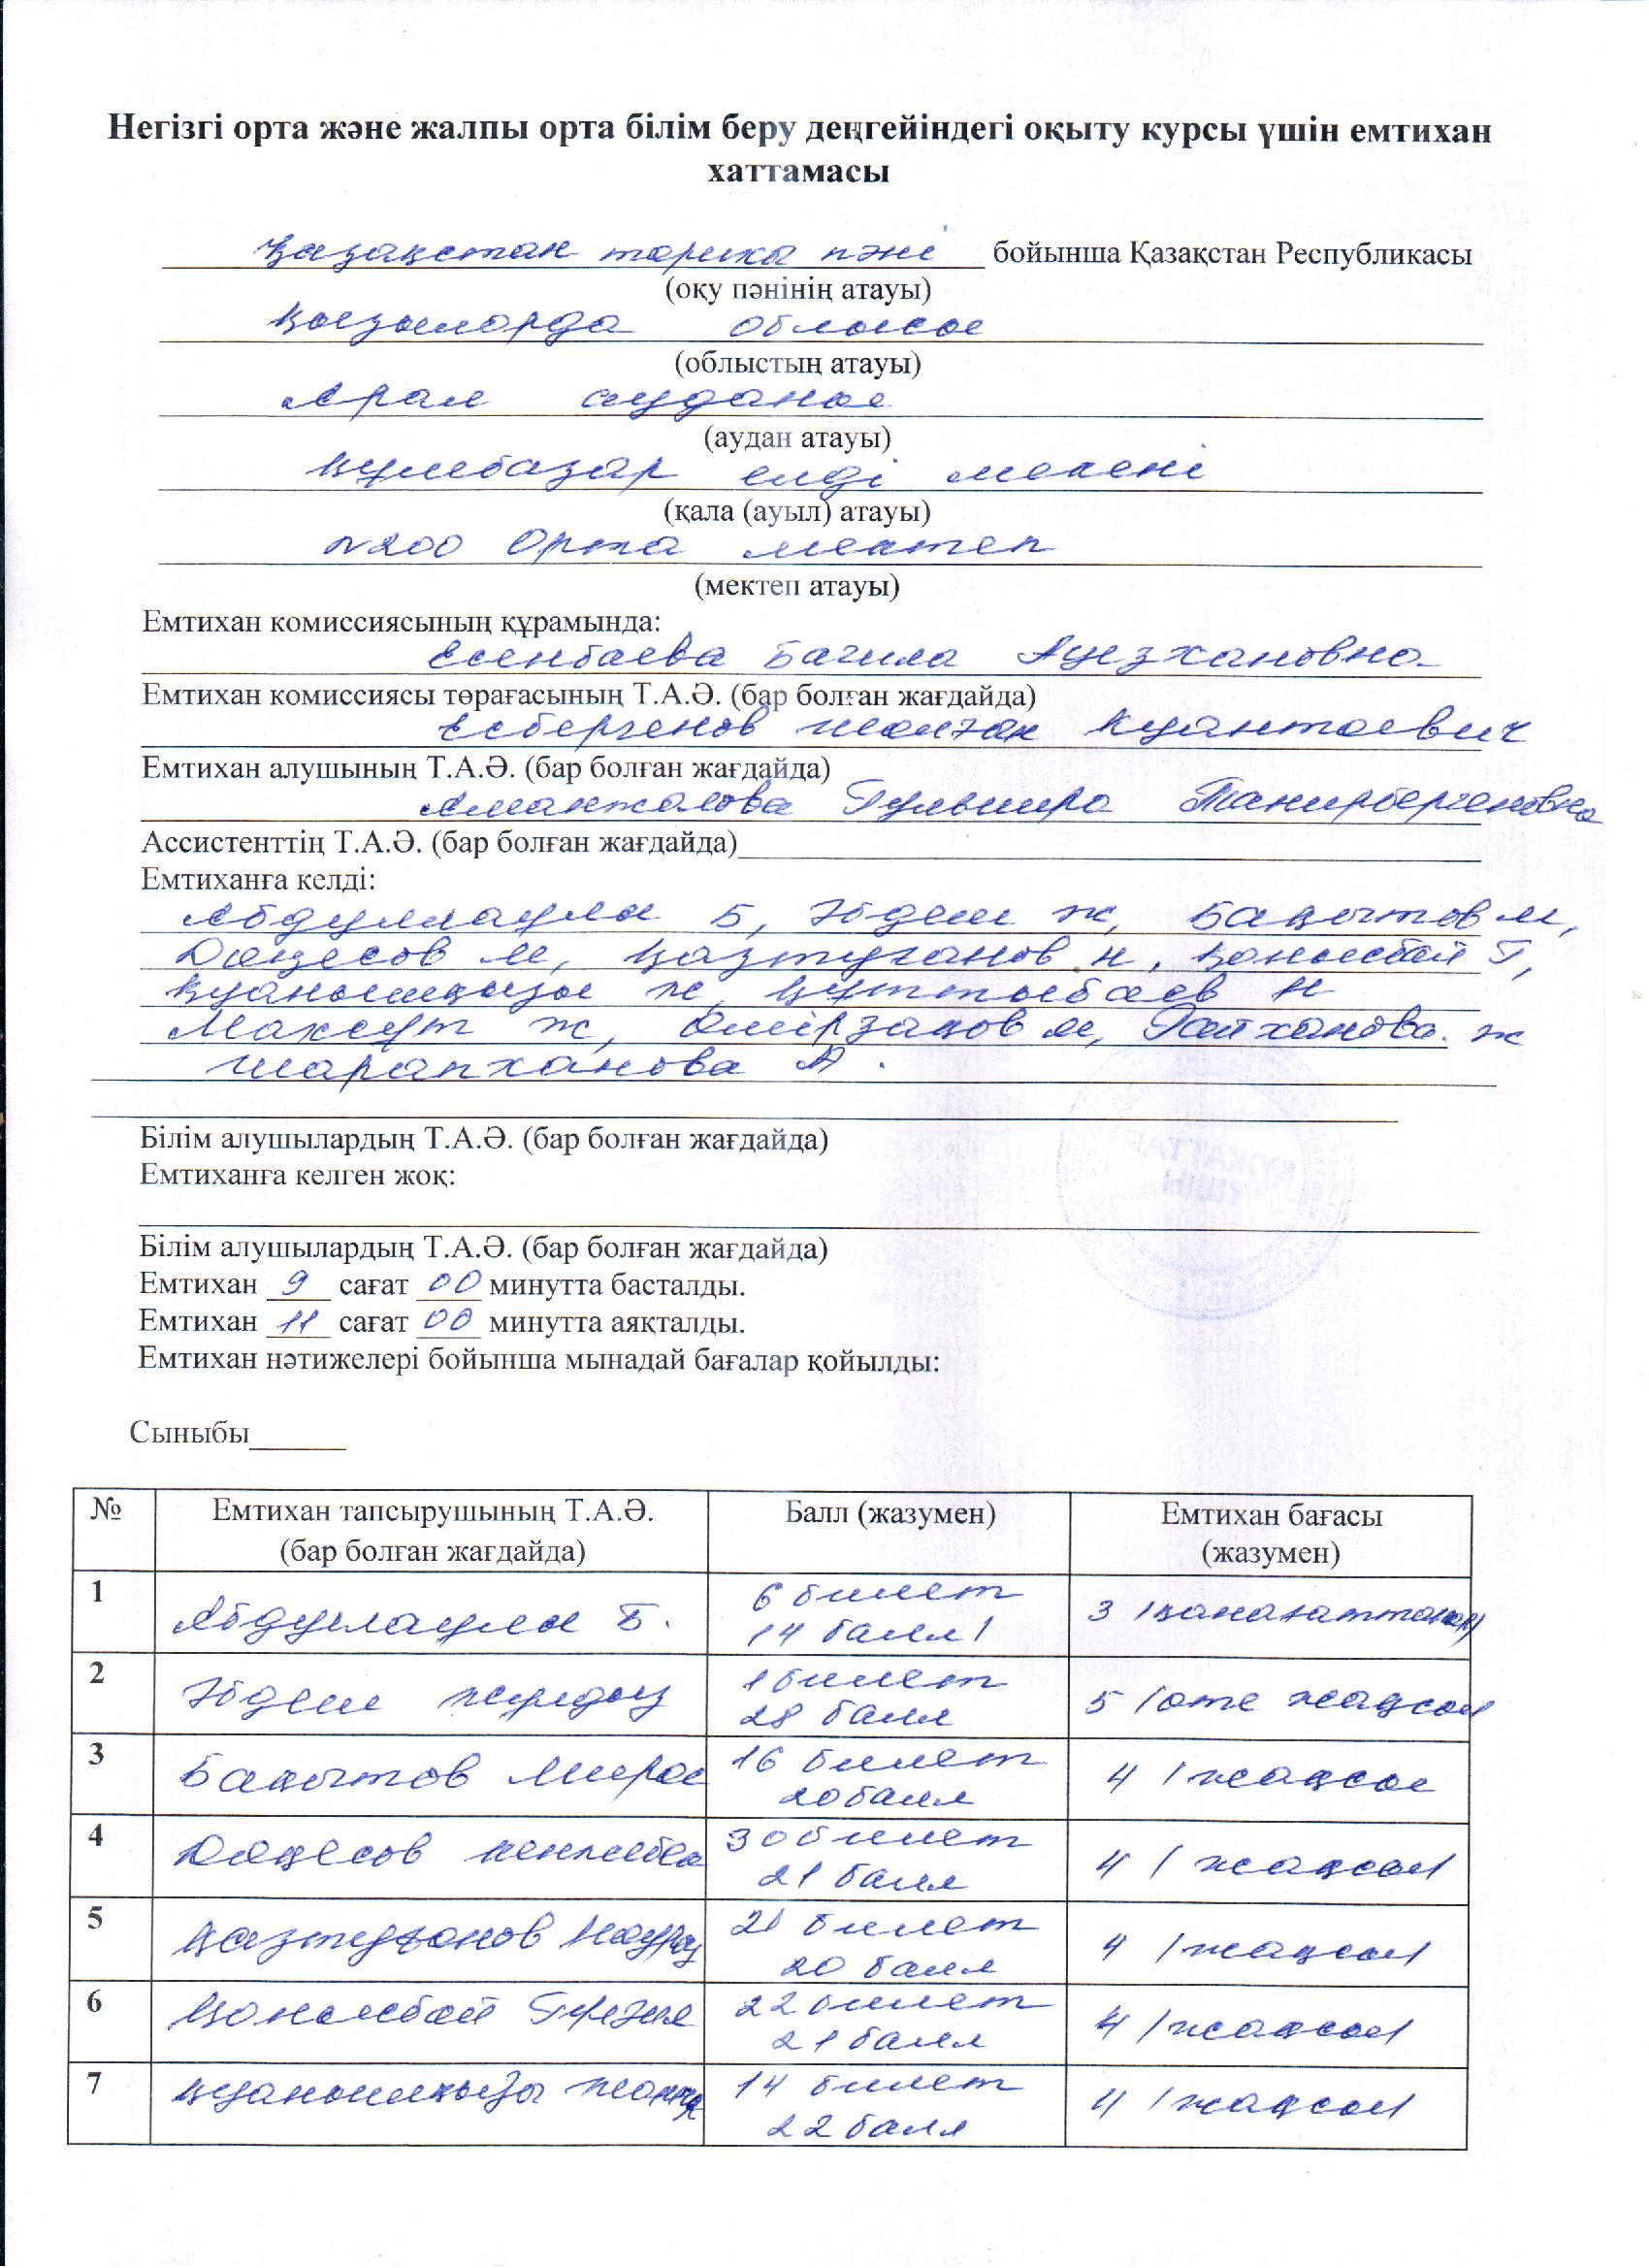 Негізгі орта және жалпы орта білім беру деңгейіндегі оқыту курсы үшін емтихан
хаттамасы
Қазақстан тарихы пәні бойынша Қазақстан Республикасы
(оқу пәнінің атауы)
Қызылорда облысы
(облыстың атауы)
Арал ауданы
(аудан атауы)
Құмбазар елді мекені
(қала (ауыл) атауы)
№200 Орта мектеп
(мектеп атауы)
Емтихан комиссиясының құрамында:
Есенбаева Багила Ауезхановна
Емтихан комиссиясы төрағасының Т.А.Ә. (бар болған жағдайда)
Есбергенов Куантаевич
Емтихан алушының Т.А.Ә. (бар болған жағдайда)
Аманжолова Гульшира Танирбергеновна
Ассистенттің Т.А.Ә. (бар болған жағдайда)
Емтиханға келді:
Абдуллаулы Б, Әбдеш Ж, Бақытов М,
Дәкесов М, Қазтуғанов Н, Қонысбай Г,
Қуанышқызы Ж, Құттыбаев Н
Махсұт Ж, Өмірзақов М, Райханова Ж
Шарапханова А.
Білім алушылардың Т.А.Ә. (бар болған жағдайда)
Емтиханға келген жоқ:
Білім алушылардың Т.А.Ә. (бар болған жағдайда)
Емтихан 9 сағат 00 минутта басталды.
Емтихан 11 сағат 00 минутта аяқталды.
Емтихан нәтижелері бойынша мынадай бағалар қойылды:
Сыныбы
№ Емтихан тапсырушының Т.А.Ә. (бар болған жағдайда) Балл (жазумен) Емтихан бағасы (жазумен)
1 Абдуллаулы Б. 6 билет 14 балл/ 3 /қанағаттанарл/
2 Әбдеш Жұлдыз 1 билет 28 балл 5 /өте жақсы/
3 Бақытов Мирас 16 билет 20 балл 4 /жақсы
4 Дәкесов 30 билет 21 балл 4 /жақсы/
5 Қазтуғанов Наурыз 21 билет 20 балл 4 /жақсы/
6 Қонысбай 22 билет 21 балл 4 /жақсы/
7 Қуанышқызы 14 билет 22 балл 4 /жақсы/